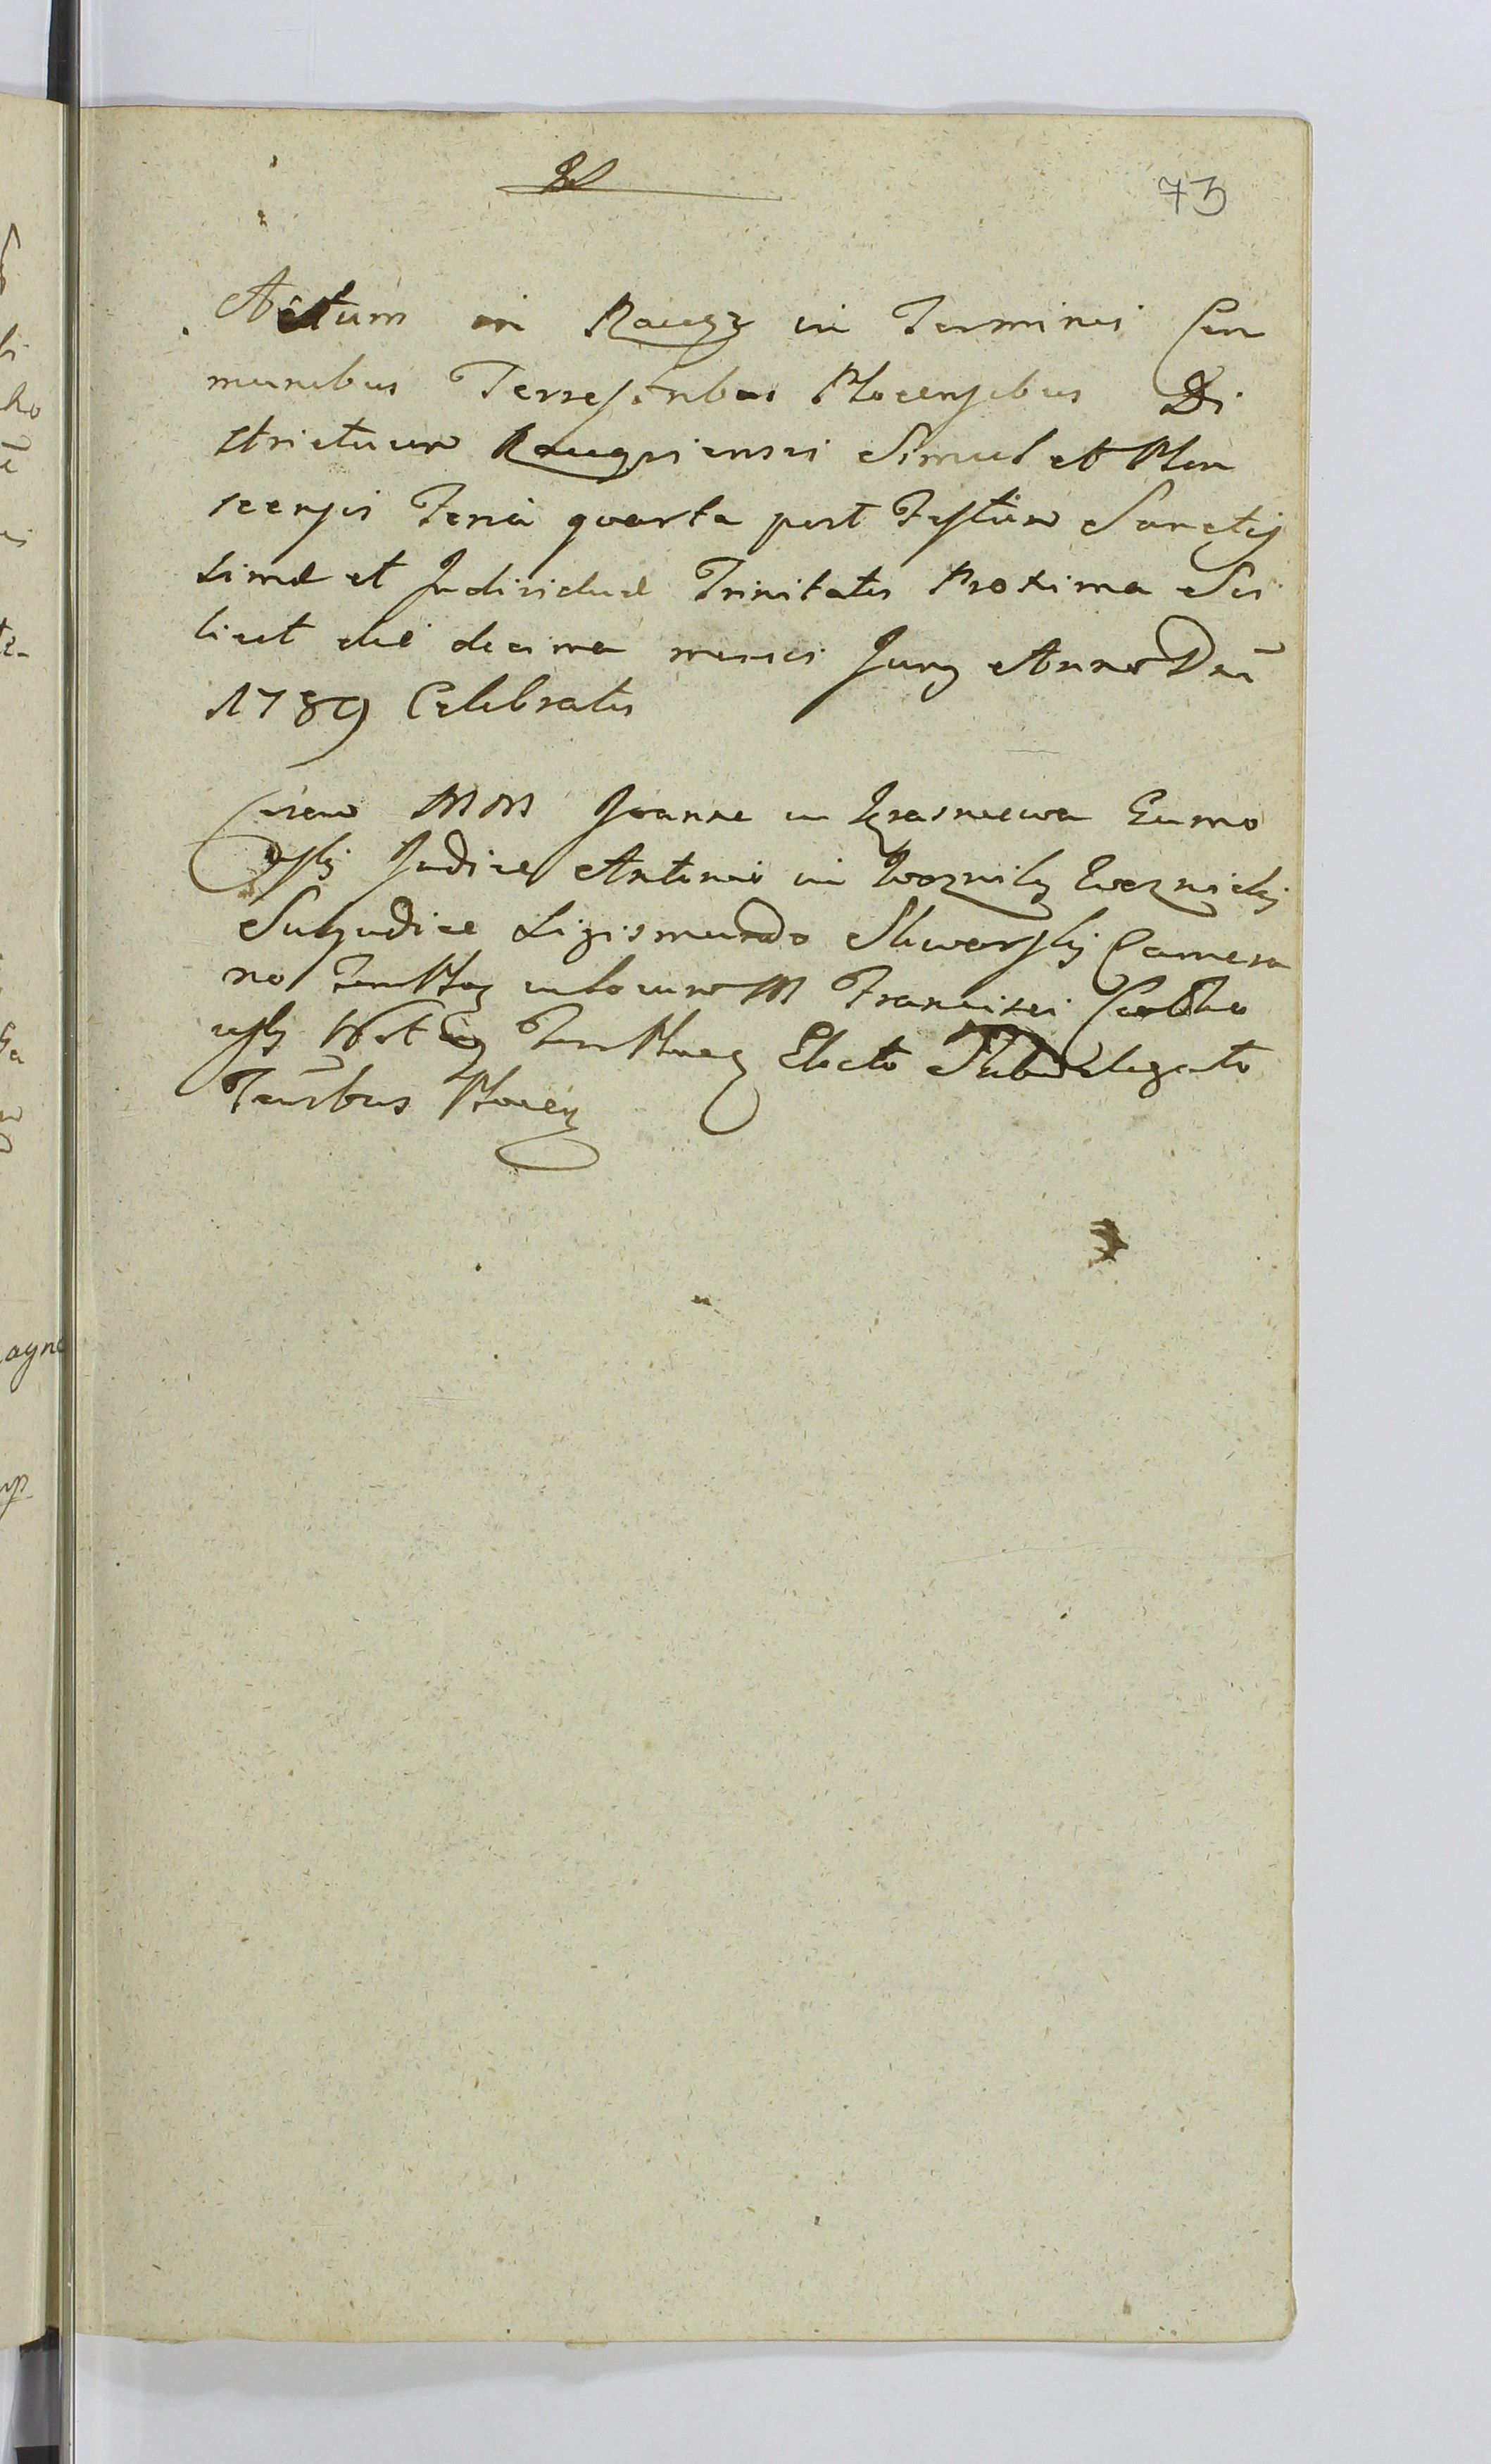 73
Actum in Raciąz in Terminis Com
munibus Terrestribus Plocensibus Di
strictuum Raciąziensis Simul et Plon
scensis Feria quarta post Festum Sanctis
simæ et Individuæ Trinitatis Proxima Sci
licet die decima mensis Juny Anno Dni
1789 Celebratis
Coram MM Joanne in Krasniewa
Judice Antonio in Wozniky Woznicky
Subjudice Sigismundo Camera
rio in locum M Francisci
Electo Subdelegato
Tenribus Plocen